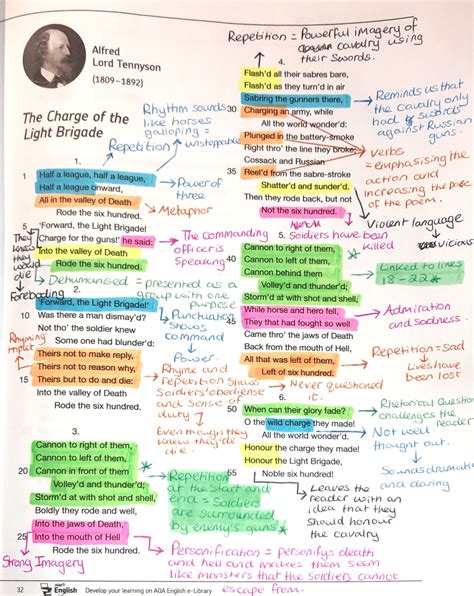 Alfred
Lord Tennyson
(1809–1892)
The Charge of the
Light Brigade
Rhythm sounds
like horses
galloping =
unstoppable
Repetition
1.
1 Half a league, half a league,
Half a league onward,
All in the valley of Death
Rode the six hundred.
5 'Forward, the Light Brigade!
Charge for the guns!' he said:
Into the valley of Death
Rode the six hundred.
Power of
three
Metaphor
The commanding
officer is
speaking
They
knew
they
would
die
Foreboding
Dehumanised = presented as a
group with one
purpose
2.
'Forward, the Light Brigade!'
10 Was there a man dismay'd?
Not tho' the soldier knew
Some one had blunder'd:
Theirs not to make reply,
Theirs not to reason why,
15 Theirs but to do and die:
Into the valley of Death
Rode the six hundred.
Punctuation
shows
command
Power.
Rhyming
triplet
Rhyme and
repetition shows
Soldiers obedience
and sense of
duty
Even though they
knew they'd die
3.
Cannon to right of them,
Cannon to left of them,
20 Cannon in front of them
Volley'd and thunder'd;
Storm'd at with shot and shell,
Boldly they rode and well,
Into the jaws of Death,
25 Into the mouth of Hell
Rode the six hundred.
Repetition
at the start and
end = soldiers
are surrounded
by enemy's guns
Strong Imagery
Personification = personifys death
and hell and makes them seem
like monsters that the soldiers cannot
escape from.
Repetition = Powerful imagery of
cavalry using
their swords.
4.
Flash'd all their sabres bare,
Flash'd as they turn'd in air
Sabring the gunners there,
30 Charging an army, while
All the world wonder'd:
Plunged in the battery-smoke
Right thro' the line they broke;
Cossack and Russian
35 Reel'd from the sabre-stroke
Shatter'd and sunder'd.
Then they rode back, but not
Not the six hundred.
Reminds us that
the Cavalry only
had swords
against Russian
guns.
Verbs
= emphasising the
action and
increasing the pace
of the poem.
Violent language
vicious
Soldiers have been
killed
5.
Cannon to right of them,
40 Cannon to left of them,
Cannon behind them
Volley'd and thunder'd;
Storm'd at with shot and shell,
While horse and hero fell,
45 They that had fought so well
Came thro' the jaws of Death
Back from the mouth of Hell,
All that was left of them,
Left of six hundred.
Linked to lines
18-22
Admiration
and sadness.
Repetition = Sad
Lives have
been lost
Never questioned
it.
6.
50 When can their glory fade?
O the wild charge they made!
All the world wonder'd.
Honour the charge they made!
Honour the Light Brigade,
55 Noble six hundred!
Rhetorical Question
challenges the
reader
Not well
thought out.
Sounds dramatic
and daring
Leaves the
reader with an
idea that they
should honour
the cavalry
32 English Develop your learning on AQA English e-Library